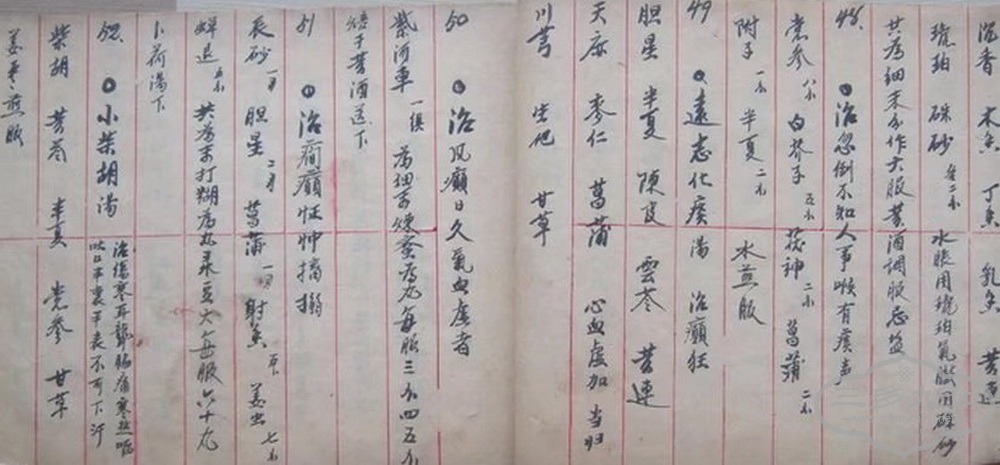 沉香 木香 丁香 乳香 黄连
琥珀 硃砂 各二小 水胀用琥珀气臌用硃砂
共为细末分作六服黄酒调服忌盐
48 治忽倒不知人事喉有痰声
党参 八小 白芥子 五小 茯神 二小 菖蒲 二小
附子 一小 半夏 二小 水煎服
49 远志化痰汤 治癫狂
胆星 半夏 陈皮 云苓 黄连
天麻 枣仁 菖蒲 心血虚加 当归
川芎 生地 甘草
50 治风癫日久气血虚者
紫河车 一俱 为细末炼蜜为丸每服三小四五小
焙干黄酒送下
51 治痫癫怔忡搐搦
辰砂 胆星 菖蒲 射香 姜虫 七小
蝉退 五小 共为末打糊为丸菉豆大每服六十丸
卜荷汤下
52 小柴胡汤 治伤寒耳聋胁痛寒热呕
吐口半里半表不可下汗
柴胡 黄芩 半夏 党参 甘草
姜枣煎服